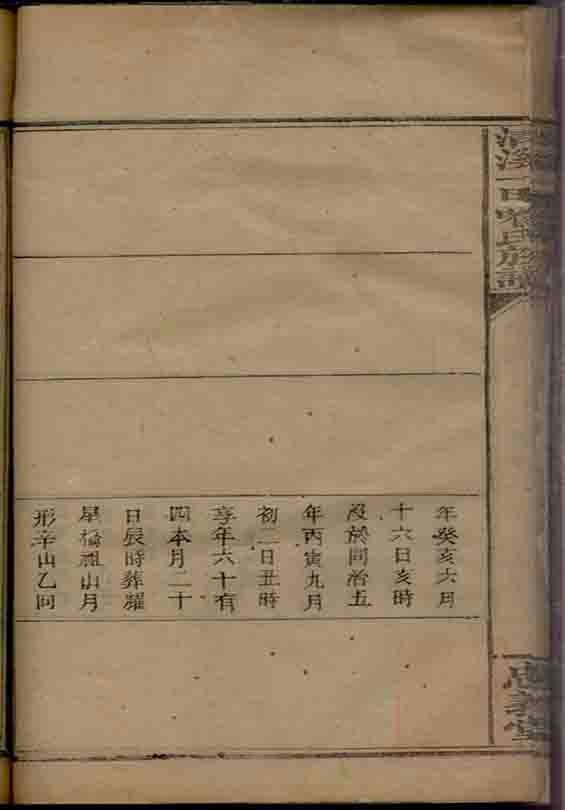 清溪一田氏族譜
年癸亥六月
十六日亥時
沒於同治五
年丙寅九月
初二日丑時
享年六十有
四本月二十
日辰時葬耀
星橋山月
形辛山乙向
忠義堂